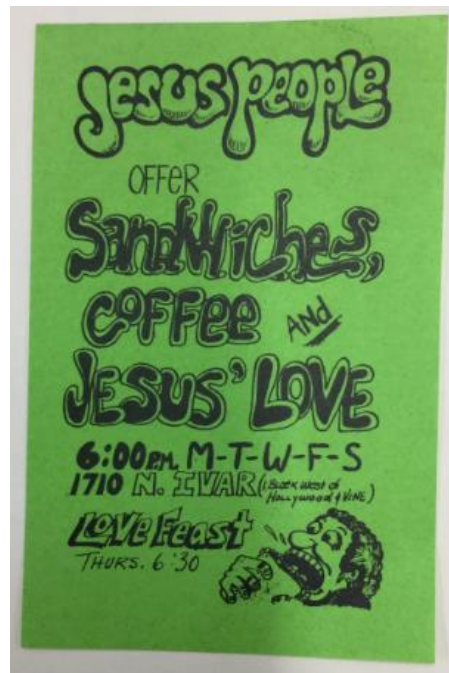 Jesus People
OFFER
Sandwiches,
COFFee AND
JESUS' LOVE
6:00 P.M. M-T-W-F-S
1710 N. IVAR (1 Block west of
Hollywood & VINE)
Love Feast
THURS. 6:30